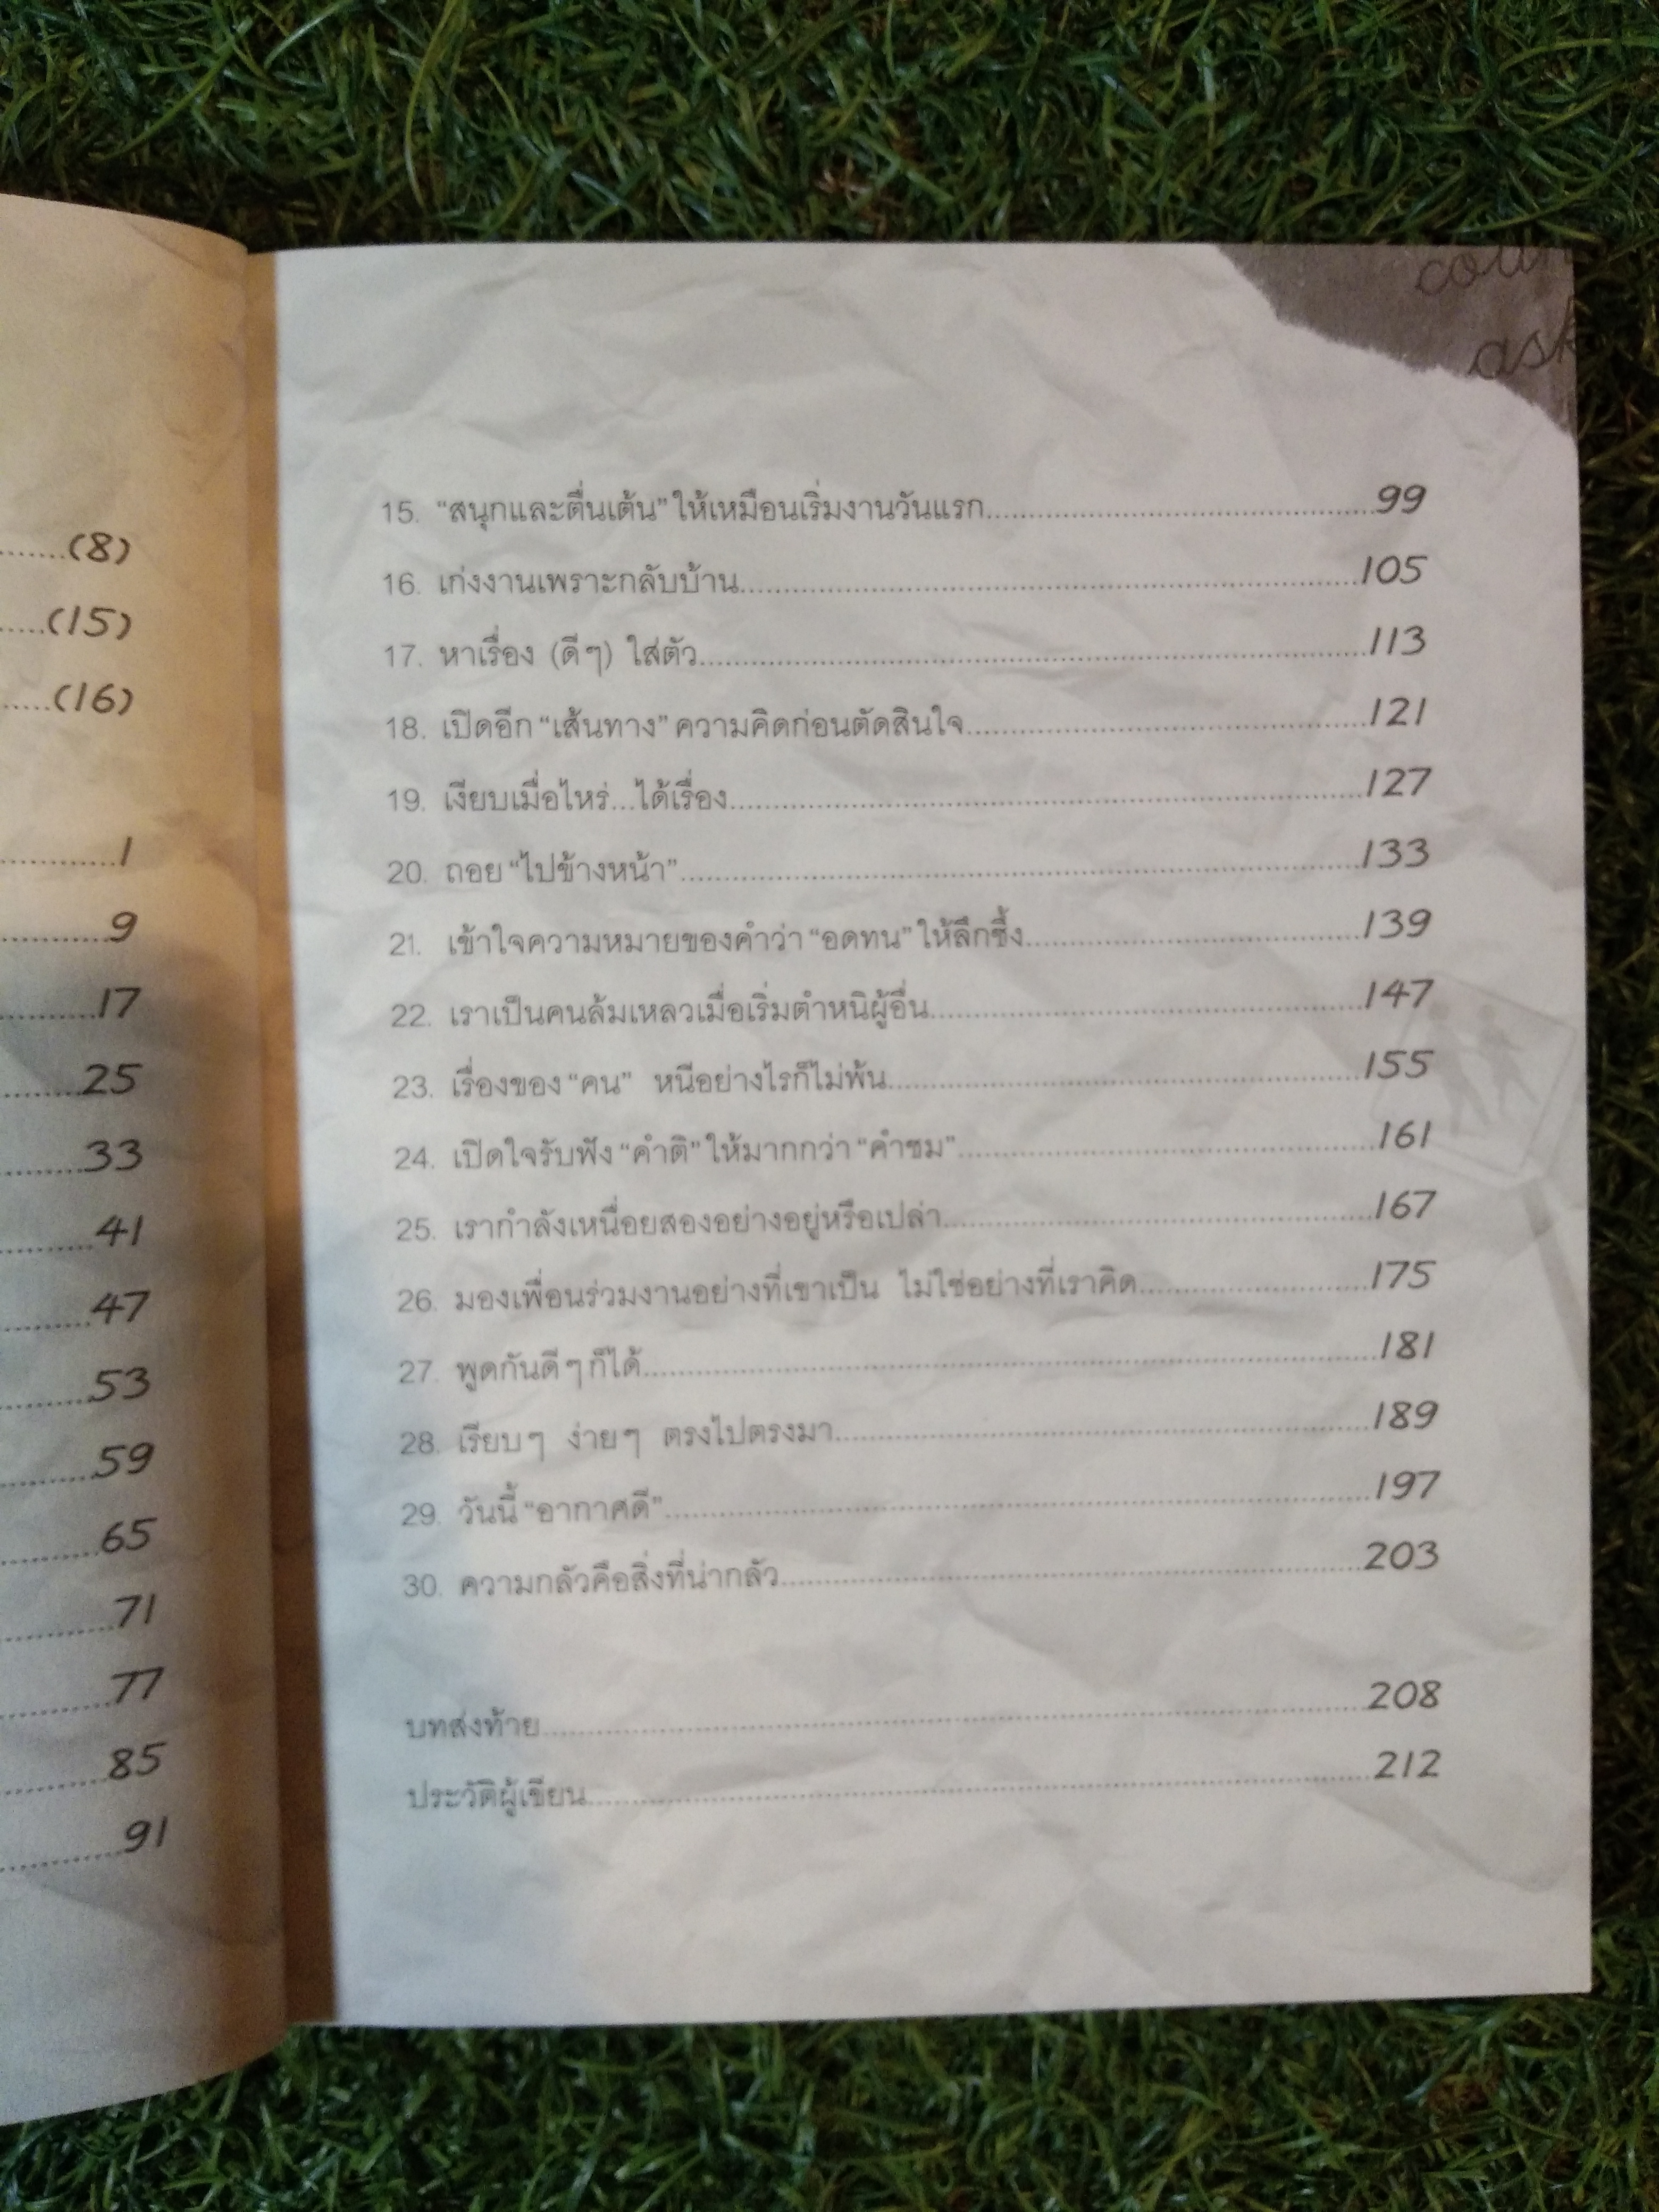 (8)
(15)
(16)
1
9
17
25
33
41
47
53
59
65
71
77
85
91
ask
15. “สนุกและตื่นเต้น” ให้เหมือนเริ่มงานวันแรก 99
16. เก่งงานเพราะกลับบ้าน 105
17. หาเรื่อง (ดีๆ) ใส่ตัว 113
18. เปิดอีก “เส้นทาง” ความคิดก่อนตัดสินใจ 121
19. เงียบเมื่อไหร่...ได้เรื่อง 127
20. ถอย “ไปข้างหน้า” 133
21. เข้าใจความหมายของคำว่า “อดทน” ให้ลึกซึ้ง 139
22. เราเป็นคนล้มเหลวเมื่อเริ่มตำหนิผู้อื่น 147
23. เรื่องของ “คน” หนีอย่างไรก็ไม่พ้น 155
24. เปิดใจรับฟัง “คำติ” ให้มากกว่า “คำชม” 161
25. เรากำลังเหนื่อยสองอย่างอยู่หรือเปล่า 167
26. มองเพื่อนร่วมงานอย่างที่เขาเป็น ไม่ใช่อย่างที่เราคิด 175
27. พูดกันดีๆ ก็ได้ 181
28. เรียบๆ ง่ายๆ ตรงไปตรงมา 189
29. วันนี้ “อากาศดี” 197
30. ความกลัวคือสิ่งที่น่ากลัว 203
บทส่งท้าย 208
ประวัติผู้เขียน 212